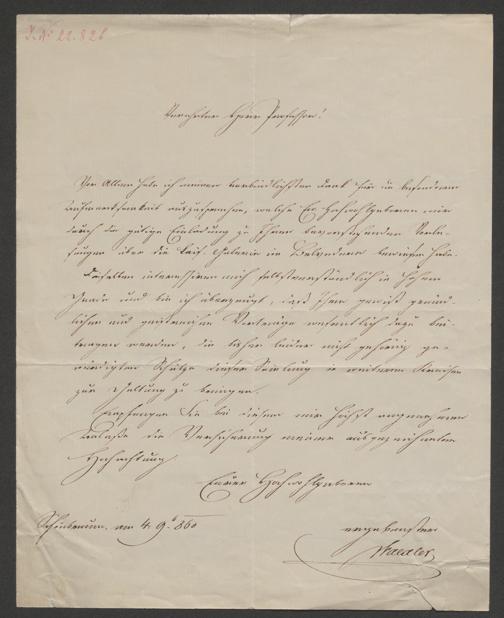 J. N. 22.826
Verehrter Herr Professor!
Vor Allem habe ich meinen verbindlichsten Dank für die besondere
Aufmerksamkeit auszusprechen, welche Euer Hochwohlgeboren mir
durch die gütige Einladung zu Ihren bevorstehenden Vorle-
sungen über die kais. Galerie im Belvedere bewiesen habe.
Dieselben interessiren mich selbstverständlich in hohem
Grade und bin ich überzeugt, daß Ihre gewiß gründ-
lichen und Vorträge wesentlich dazu bei-
tragen werden, die bisher leider nicht gehörig ge-
würdigten Schätze dieser Samlung in weiteren Kreisen
zur Geltung zu bringen.
Empfangen Sie bei diesem mir höchst angenehmen
Anlaße die Versicherung meiner ausgezeichneten
Hochachtung
Euer Hochwohlgeboren
Schönbrunn, am 4. 9. 860
ergebenster